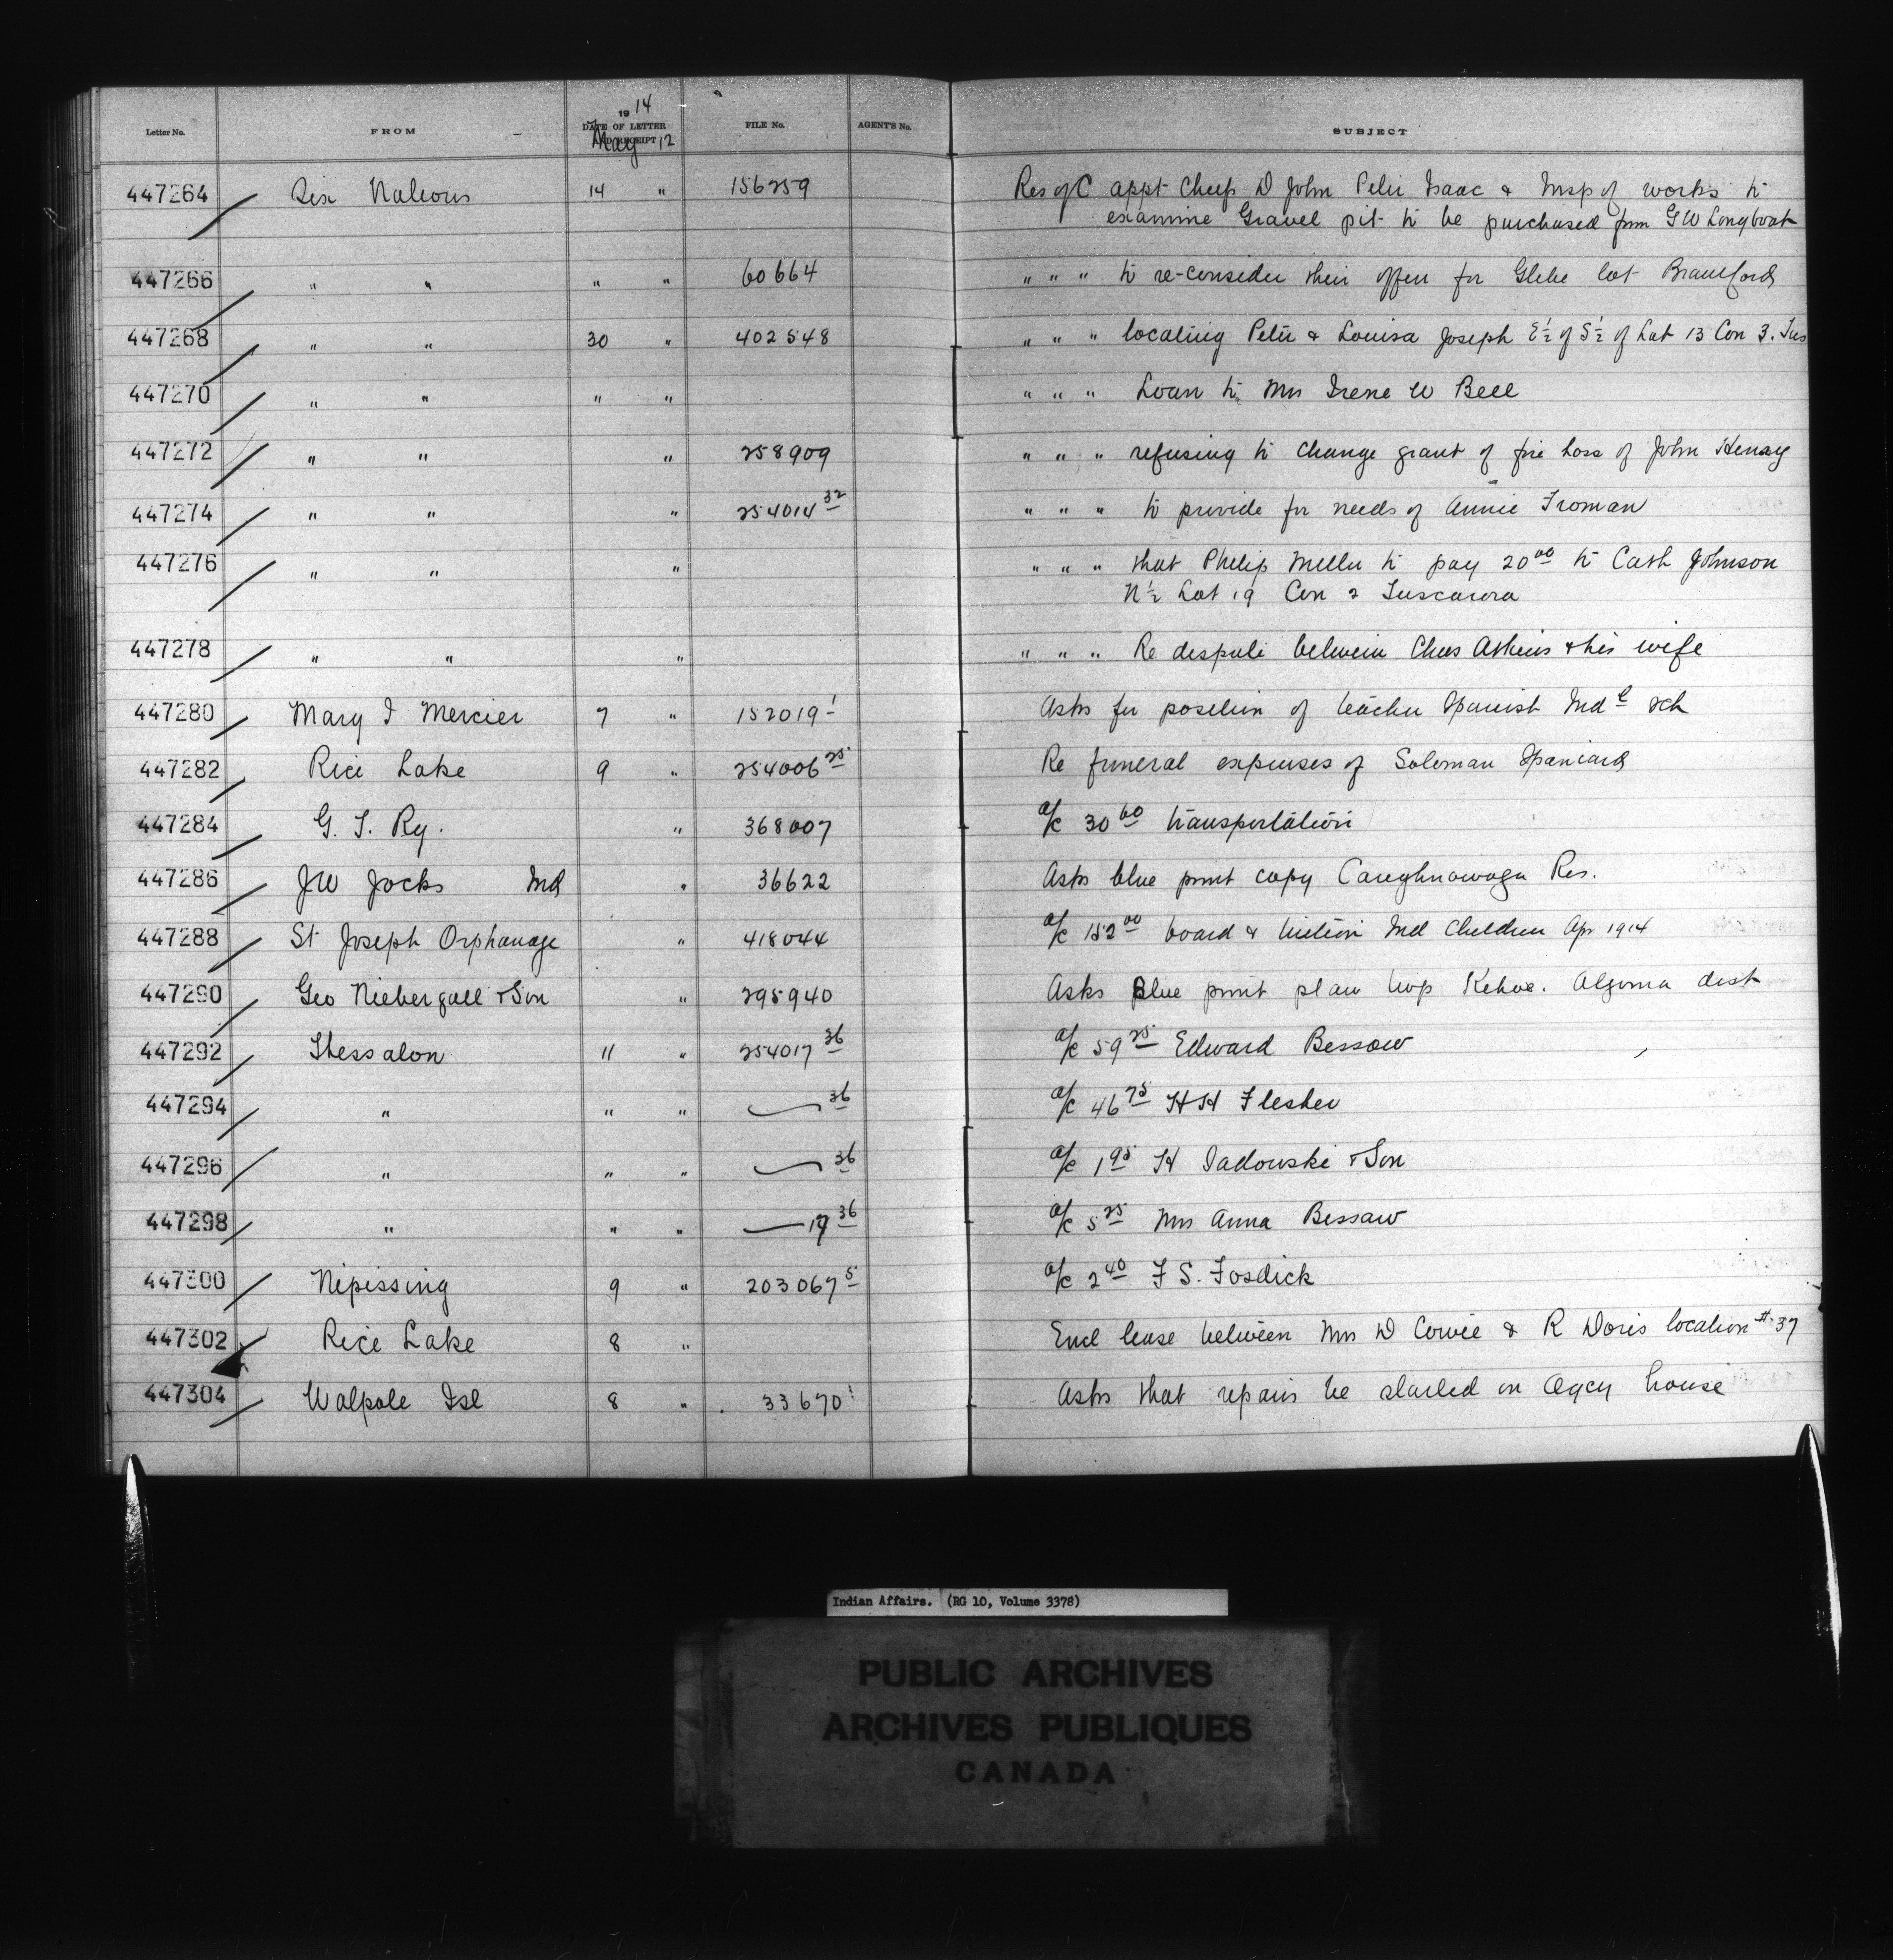 Letter No. FROM 1914 DATE OF LETTER AND RECEIPT May 12 FILE No. AGENT'S No. SUBJECT
447264 Six Nations 14 " 156259 Res of C appt Chiefs D John Peter Isaac & Insp of works to
examine Gravel pit to be purchased from G W Longboat
447266 " " " " 60664 " " " to re-consider their offer for Glebe lot Brantford
447268 " " 30 " 402548 " " " locating Peter & Louisa Joseph E½ of S½ of Lot 13 Con 3. Tus
447270 " " " " " " " Loan to Mrs Irene W Bell
447272 " " " 258909 " " " refusing to change grant of fire loss of John Henry
447274 " " " 254014 32 " " " to provide for needs of Annie Froman
447276 " " " " " " that Philip Miller to pay 20 00 to Cath Johnson
N½ Lot 19 Con 2 Tuscarora
447278 " " " " " " Re dispute between Chas Askins & his wife
447280 Mary I Mercier 7 " 152019-1 Asks for position of teacher Spanish Indl sch
447282 Rice Lake 9 " 254006 25 Re funeral expenses of Soloman Spaniard
447284 G. T. Ry. " 368007 a/c 30 60 transportation
447286 J W Jocks Ind " 36622 Asks blue print copy Caughnawaga Res.
447288 St Joseph Orphanage " 418044 a/c 152 00 board & tuition Ind Children Apr 1914
447290 Geo Niebergall & Son " 295940 Asks Blue print plan twp Kehoe. Algoma dist
447292 Thessalon 11 " 254017 36 a/c 59 25 Edward Bessaw
447294 " " " 36 a/c 46 75 H H Flesher
447296 " " " 36 a/c 1 95 H Sadowski & Son
447298 " " " 17 36 a/c 5 25 Mrs Anna Bessaw
447300 Nipissing 9 " 203067 5 a/c 2 40 F S. Fosdick
447302 Rice Lake 8 " Encl lease between Mrs D Cowie & R Doris location # 37
447304 Walpole Isl 8 " 33670 1 Asks that repairs be started on Agcy house
Indian Affairs. (RG 10, Volume 3378)
PUBLIC ARCHIVES
ARCHIVES PUBLIQUES
CANADA